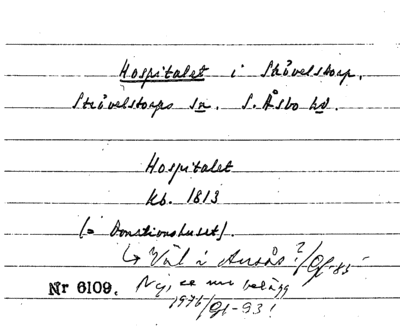 Hospitalet i Stövelstorp.
Strövelstorps sn. S. Åsbo hd.
Hospitalet
kb. 1813
(= Donationshuset).
↳ Väl i Ausås? /Gf-85
Nr 6109. Nej, se nu belägg
1976/Gf-93!